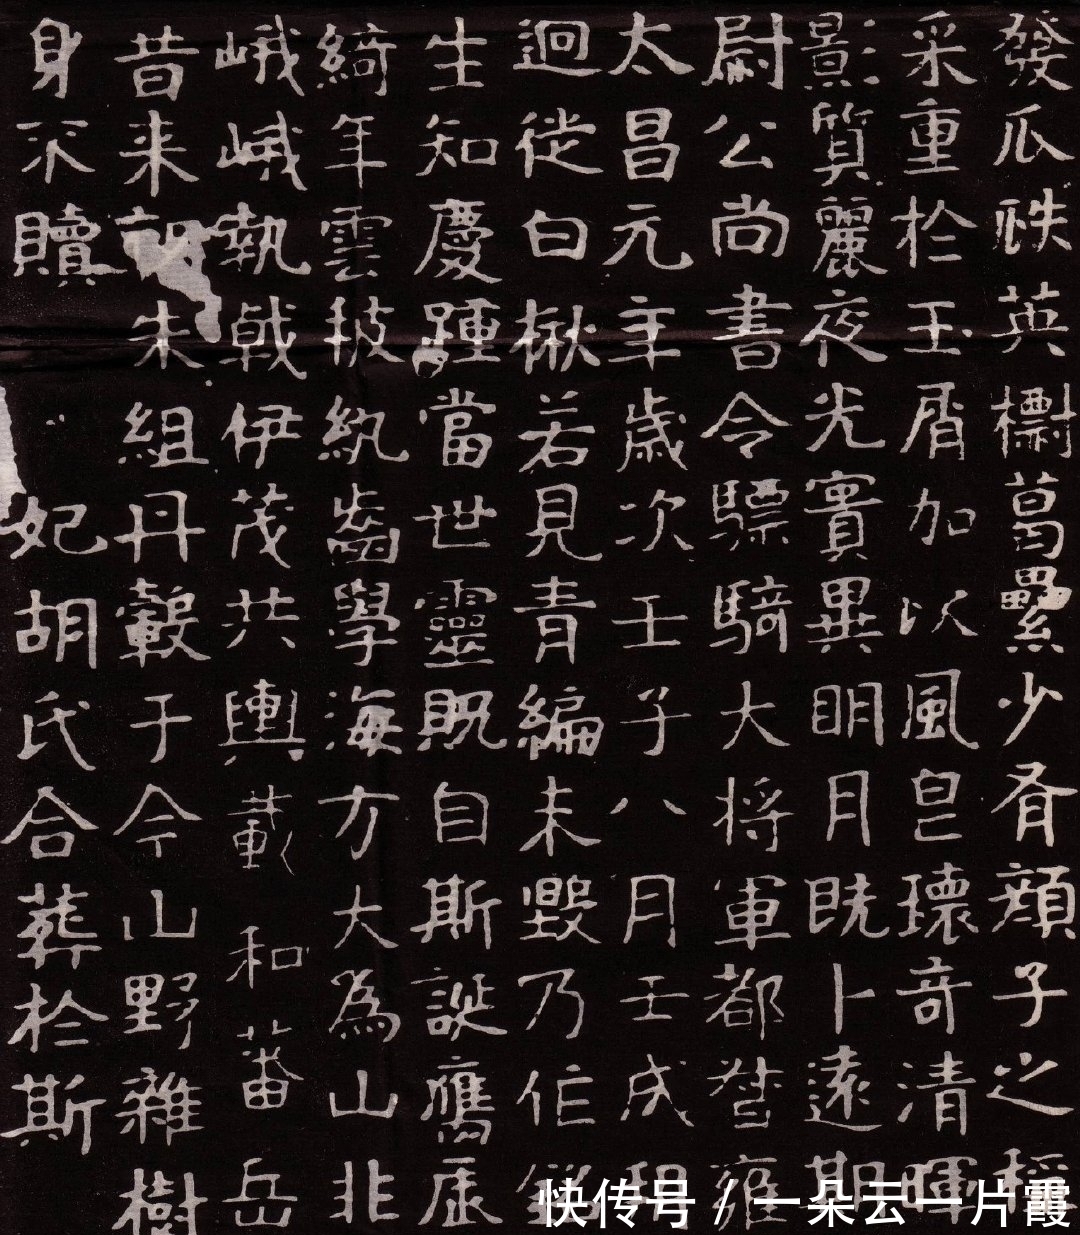 發瓜英葛纍少有顔子之稱
采重扵玉屑加以風皃瓌奇清暉
影質麗夜光實異明月旣卜遠期
尉公尚書令驃騎大将軍都督雍
太昌元年歲次壬子八月壬戌朔
迴從白楸若見青編未毀乃作銘
生知慶踵當世靈旣自斯誕膺
綺年雲披紈齒學海方大為山非
峨峨執戟伊茂共輿載和蕃岳
昔来朱組丹轂于今山野雜樹
身不贖 妃胡氏合葬扵斯
快传号 / 一朵云一片霞